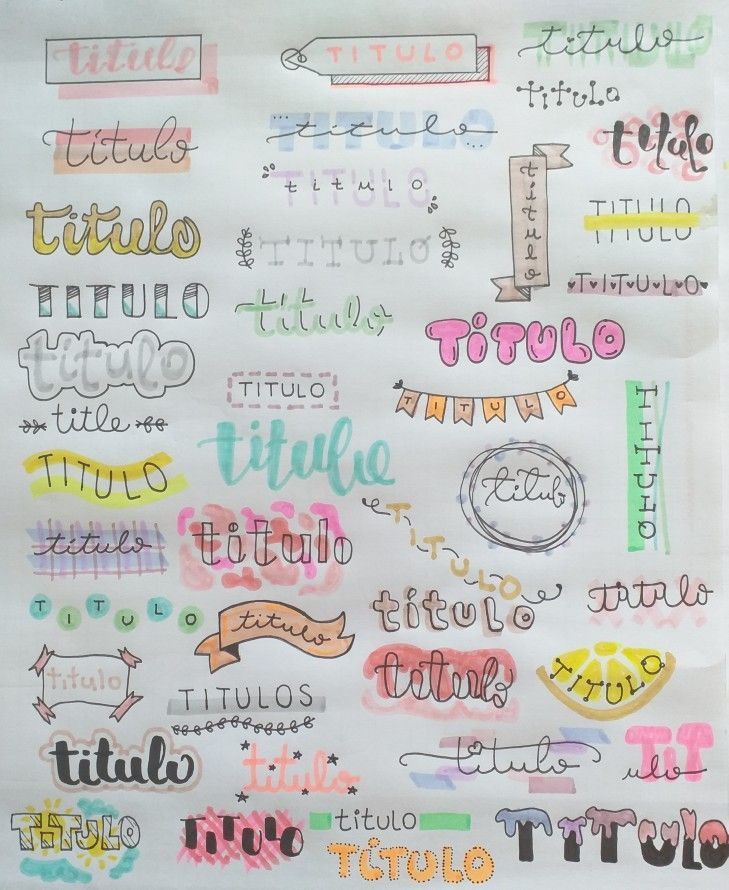 titulo
TITULO
titulo
titulo
título
titulo
titulo
titulo
titulo
TITULO
título
TITULO
TITULO
TITULO
título
TÍTULO
titulo
TITULO
TITULO
title
titulo
TITULO
TITULO
titulo
titulo
titulo
TITULO
TITULO
titulo
título
titulo
titulo
titulo
titulo
TITULO
TITULOS
titulo
titulo
titulo
TIT
ulo
TITULO
TITULO
titulo
TÍTULO
TITULO